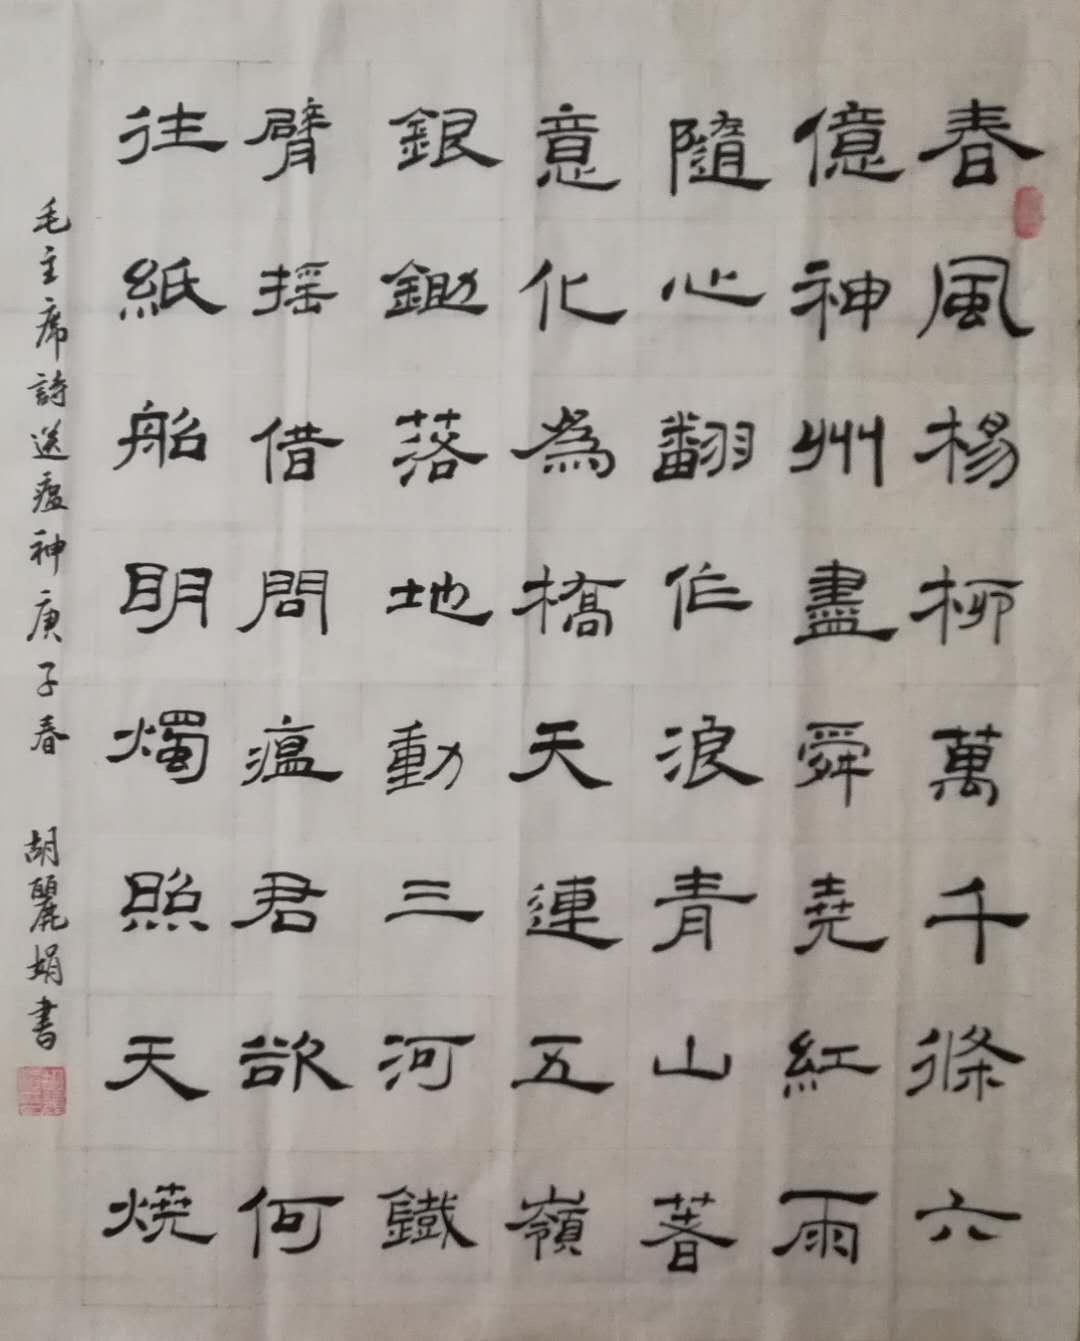 春風楊柳萬千條六
億神州盡舜堯紅雨
隨心翻作浪青山著
意化為橋天連五嶺
銀鋤落地動三河鐵
臂摇借問瘟君欲何
往紙船明燭照天燒
毛主席詩送瘟神庚子春 胡麗娟書